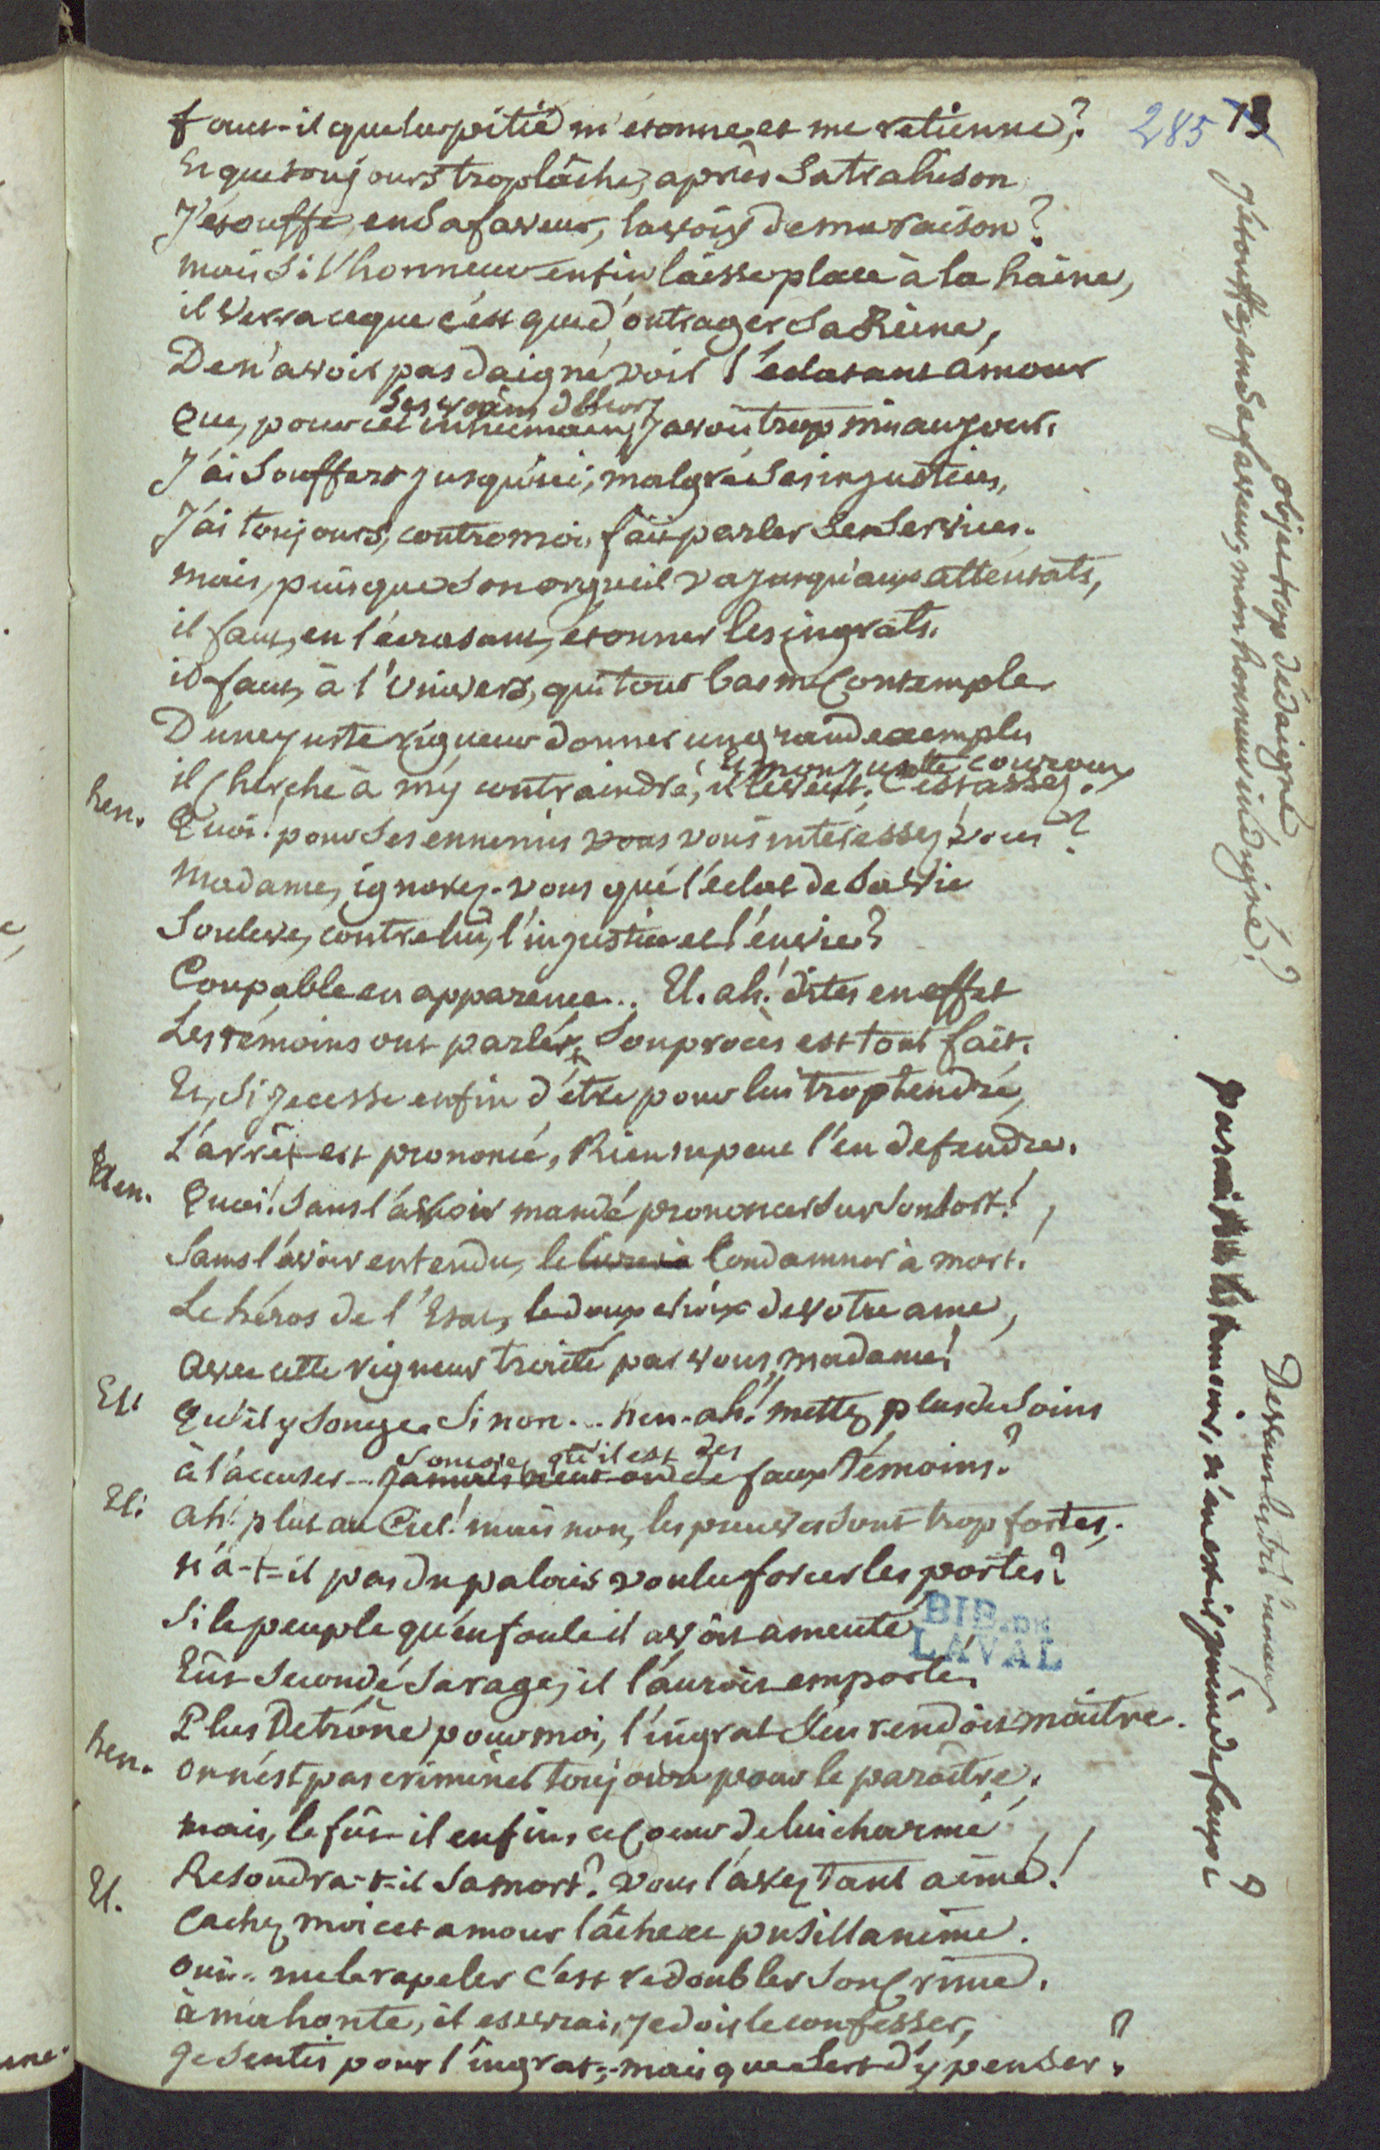 285 13
faut-il que la pitié m'étonne et me retienne,?
Et que toujours trop lâche, après sa trahison
J'étouffe, en sa faveur, la voix de ma raison?
mais si l'honneur enfin laisse place à la haine,
il verra ce que c'est que d'outrager sa Reine,
De n'avoir pas daigné voir l'éclatant amour
que, pour cet inhumain, j'avois trop mis au jour.
J'ai souffert jusqu'ici, malgré ses injustices,
J'ai toujours, contre moi, fait parler ses services.
mais, puisque son orgueil va jusqu'aux attentats,
il faut, en l'écrasant, étonner les ingrats.
il faut, à l'univers, qui tout bas me contemple
D'une juste rigueur donner un grand exemple
Et mon juste couroux
il cherche à m'y contraindre, il le veut. C'est assez.
hen. Quoi! pour ses ennemis vous vous intéressez vous?
Madame, ignorez-vous que l'éclat de sa vie
Souleve, contre lui, l'injustice et l'envie?
Coupable en apparence... El. ah! dites en effet
Les témoins ont parlé, son procès est tout fait.
Et, si je cesse enfin d'être pour lui trop tendre,
L'arrêt est prononcé, Rien ne peut l'en defendre.
hen. Quoi! sans l'avoir mandé prononcer sur son sort!,
Sans l'avoir entendu, le livrer à condamner à mort!
Le héros de l'Etat, le doux choix de votre ame,
avec cette rigueur traité par vous, madame!
Eli qu'il y songe. Sinon... hen. ah! mettez plus de soins
Songez, qu'il est des
à l'accuser... faux témoins?
Eli ah! plut au Ciel! mais non, les preuves sont trop fortes.
n'a-t-il pas du palais voulu forcer les portes?
Si le peuple qu'en foule il avoit ameuté
Eût secondé sa rage, il l'auroit emporté.
Plus de trône pour moi, l'ingrat s'en rendoit maître.
hen. on n'est pas criminel toujours pour le paroître.
mais, le fût-il enfin, ce coeur de lui charmé
Resoudra-t-il sa mort? vous l'avez tant aimé!
El. cachez moi cet amour lâche et pusillanime.
oui.. me le rapeler c'est redoubler son crime.
à ma honte, il est vrai, je dois le confesser,
je sentis pour l'ingrat... mais que sert d'y penser?
J'étouffe, en sa faveur, mon honneur indigné?
objet trop dédaigné
n'en est-il point de faux?
Devant les tribunaux
BIB. DE
LAVAL